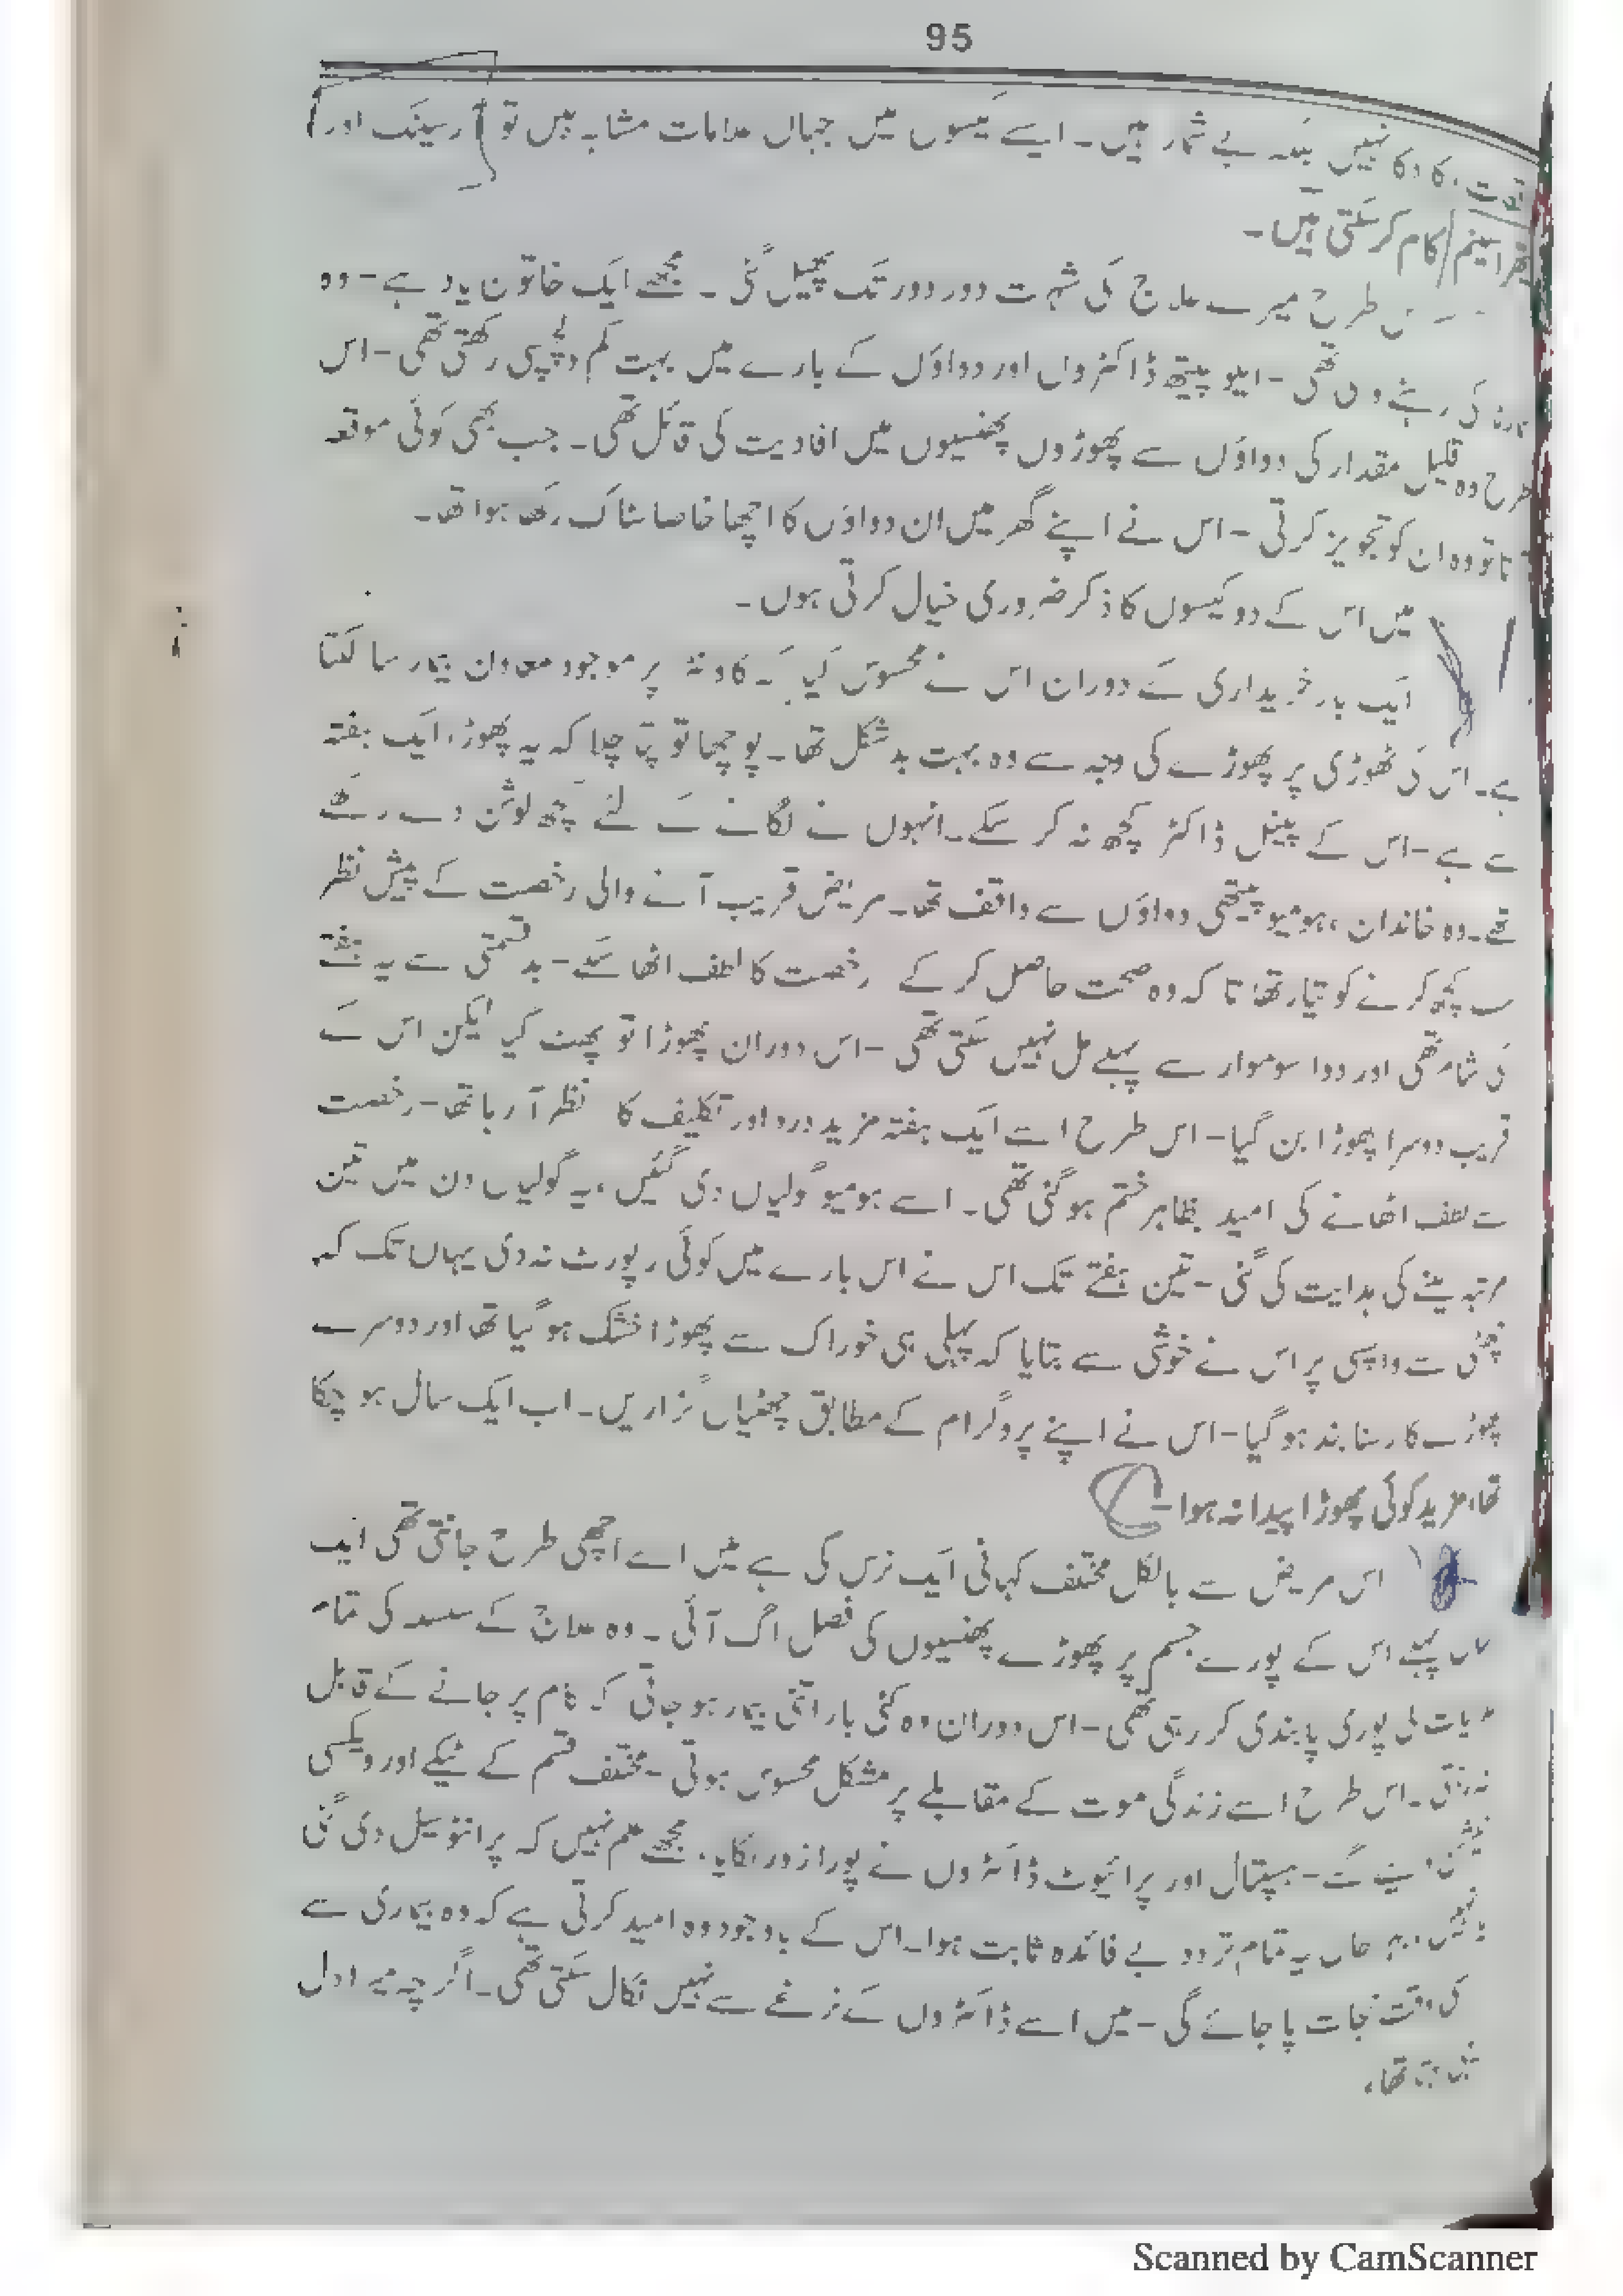 95
نہیں بلکہ بے شمار ہیں۔ ایسے کیسوں میں جہاں علامات مشابہ ہیں تو (آرسینک اور)
کام کر سکتی ہیں۔
طرح میرے علاج کی شہرت دور دور تک پھیل گئی۔ مجھے ایک خاتون یاد ہے۔ وہ
کی رہنے والی تھی۔ ایلوپیتھ ڈاکٹروں اور دواؤں کے بارے میں بہت کم دلچسپی رکھتی تھی۔ اس
طرح وہ قلیل مقدار کی دواؤں سے پھوڑوں پھنسیوں میں افادیت کی قائل تھی۔ جب بھی کوئی موقعہ
آتا تو وہ ان کو تجویز کرتی۔ اس نے اپنے گھر میں ان دواؤں کا اچھا خاصا سٹاک رکھا ہوا تھا۔
میں اس کے دو کیسوں کا ذکر ضروری خیال کرتی ہوں۔
ایک بار خریداری کے دوران اس نے محسوس کیا کہ کاونٹر پر موجود معاون بیمار سا لگتا
ہے۔ اس کی ٹھوڑی پر پھوڑے کی وجہ سے وہ بہت بدشکل تھا۔ پوچھا تو پتہ چلا کہ یہ پھوڑا ایک ہفتہ
سے ہے۔ اس کے پینل ڈاکٹر کچھ نہ کر سکے۔ انہوں نے لگانے کے لئے کچھ لوشن دے رکھے
تھے۔ وہ خاندان، ہومیوپیتھی دواؤں سے واقف تھا۔ مریض قریب آنے والی رخصت کے پیش نظر
سب کچھ کرنے کو تیار تھا تا کہ وہ صحت حاصل کر کے رخصت کا لطف اٹھا سکے۔ بدقسمتی سے یہ ہفتے
کی شام تھی اور دوا سوموار سے پہلے مل نہیں سکتی تھی۔ اس دوران پھوڑا تو پھٹ گیا لیکن اس کے
قریب دوسرا پھوڑا بن گیا۔ اس طرح اسے ایک ہفتہ مزید درد اور تکلیف کا نظر آ رہا تھا۔ رخصت
سے لطف اٹھانے کی امید بظاہر ختم ہو گئی تھی۔ اسے ہومیو گولیاں دی گئیں، یہ گولیاں دن میں تین
مرتبہ لینے کی ہدایت کی گئی۔ تین ہفتے تک اس نے اس بارے میں کوئی رپورٹ نہ دی یہاں تک کہ
چھٹی سے واپسی پر اس نے خوشی سے بتایا کہ پہلی ہی خوراک سے پھوڑا خشک ہو گیا تھا اور دوسرے
پھوڑے کا رسنا بند ہو گیا۔ اس نے اپنے پروگرام کے مطابق چھٹیاں گزاریں۔ اب ایک سال ہو چکا
تھا، مزید کوئی پھوڑا پیدا نہ ہوا۔
اس مریض سے بالکل مختلف کہانی ایک نرس کی ہے میں اسے اچھی طرح جانتی تھی ایک
سال پہلے اس کے پورے جسم پر پھوڑے پھنسیوں کی فصل اگ آئی۔ وہ علاج کے سلسلہ کی تمام
ہدایات کی پوری پابندی کر رہی تھی۔ اس دوران وہ کئی بار اتنی بیمار ہو جاتی کہ کام پر جانے کے قابل
نہ رہتی۔ اس طرح اسے زندگی موت کے مقابلے پر مشکل محسوس ہوتی۔ مختلف قسم کے ٹیکے اور ویکسی
نیشن دیئے گئے۔ ہسپتال اور پرائیوٹ ڈاکٹروں نے پورا زور لگایا، مجھے علم نہیں کہ پرانٹوسیل دی گئی
یا نہیں، بہر حال یہ تمام تردد بے فائدہ ثابت ہوا۔ اس کے باوجود وہ امید کرتی ہے کہ وہ بیماری سے
کسی وقت نجات پا جائے گی۔ میں اسے ڈاکٹروں کے نرغے سے نہیں نکال سکتی تھی۔ اگرچہ میرا دل
تھا،
Scanned by CamScanner